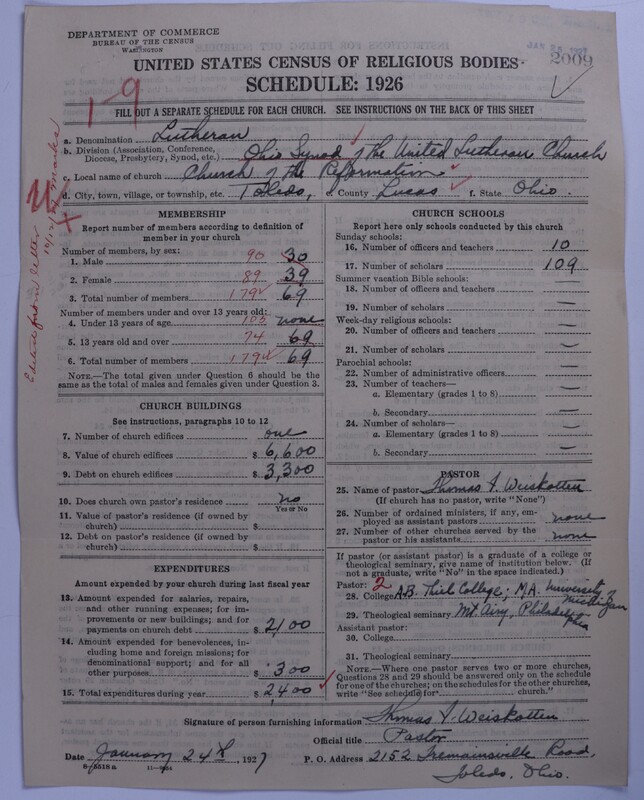 DEPARTMENT OF COMMERCE
BUREAU OF THE CENSUS
WASHINGTON
JAN 25 1927
2009
UNITED STATES CENSUS OF RELIGIOUS BODIES
SCHEDULE: 1926
1-9
FILL OUT A SEPARATE SCHEDULE FOR EACH CHURCH. SEE INSTRUCTIONS ON THE BACK OF THIS SHEET
a. Denomination Lutheran
b. Division (Association, Conference, Diocese, Presbytery, Synod, etc.) Ohio Synod of the United Lutheran Church
c. Local name of church Church of the Reformation
d. City, town, village, or township, etc. Toledo, e. County Lucas f. State Ohio.
MEMBERSHIP
Report number of members according to definition of member in your church
Number of members, by sex:
1. Male 90 30
2. Female 89 39
3. Total number of members 179 69
Number of members under and over 13 years old:
4. Under 13 years of age 105 none
5. 13 years old and over 74 69
6. Total number of members 179 69
NOTE.—The total given under Question 6 should be the same as the total of males and females given under Question 3.
CHURCH BUILDINGS
See instructions, paragraphs 10 to 12
7. Number of church edifices one
8. Value of church edifices $ 6,600
9. Debt on church edifices $ 3,300
10. Does church own pastor's residence no
Yes or No
11. Value of pastor's residence (if owned by church) $
12. Debt on pastor's residence (if owned by church) $
EXPENDITURES
Amount expended by your church during last fiscal year
13. Amount expended for salaries, repairs, and other running expenses; for improvements or new buildings; and for payments on church debt $ 2100
14. Amount expended for benevolences, including home and foreign missions; for denominational support; and for all other purposes $ 300
15. Total expenditures during year $ 2400
CHURCH SCHOOLS
Report here only schools conducted by this church
Sunday schools:
16. Number of officers and teachers 10
17. Number of scholars 109
Summer vacation Bible schools:
18. Number of officers and teachers —
19. Number of scholars —
Week-day religious schools:
20. Number of officers and teachers —
21. Number of scholars —
Parochial schools:
22. Number of administrative officers —
23. Number of teachers—
a. Elementary (grades 1 to 8) —
b. Secondary —
24. Number of scholars—
a. Elementary (grades 1 to 8) —
b. Secondary —
PASTOR
25. Name of pastor Thomas I. Weiskotten
(If church has no pastor, write "None")
26. Number of ordained ministers, if any, employed as assistant pastors none
27. Number of other churches served by the pastor or his assistants none
If pastor (or assistant pastor) is a graduate of a college or theological seminary, give name of institution below. (If not a graduate, write "No" in the space indicated.)
Pastor: 2
28. College A.B. Thiel College; M.A. University Michigan
29. Theological seminary Mt Airy, Philadelphia
Assistant pastor:
30. College
31. Theological seminary
NOTE.—Where one pastor serves two or more churches, Questions 28 and 29 should be answered only on the schedule for one of the churches; on the schedules for the other churches, write "See schedule for church."
Signature of person furnishing information Thomas I. Weiskotten
Official title Pastor
Date January 24th, 1927 P. O. Address 2152 Tremainsville Road,
Toledo, Ohio.
8-5518 a 11-9034